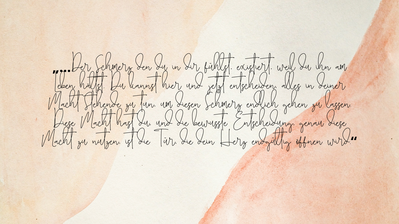 „....Der Schmerz den du in dir fühlst, existiert, weil du ihn am
Leben hältst. Du kannst hier und jetzt entscheiden, alles in deiner
Macht Stehende zu tun, um diesen Schmerz endlich gehen zu lassen.
Diese Macht hast du und die bewusste Entscheidung genau diese
Macht zu nutzen, ist die Tür, die dein Herz endgültig öffnen wird."